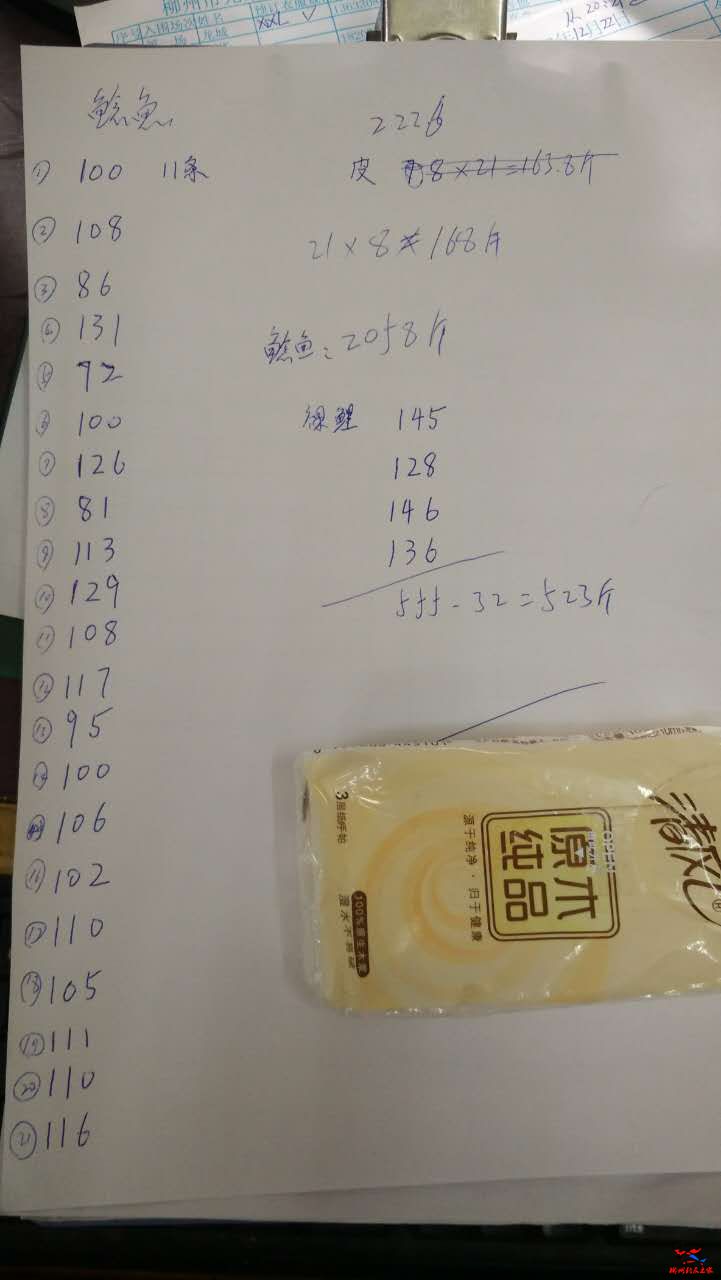 XXL ✓
序号
鲶鱼
① 100 11条
② 108
③ 86
④ 131
⑤ 92
⑥ 100
⑦ 126
⑧ 81
⑨ 113
⑩ 129
⑪ 108
⑫ 117
⑬ 95
⑭ 100
⑮ 106
⑯ 102
⑰ 110
⑱ 105
⑲ 111
⑳ 110
㉑ 116
2226
皮 8×21=163.8斤
21×8=168斤
鲶鱼:2058斤
145
128
146
136
555-32=523斤
清风®
原木
纯品
源于纯净·归于健康
3层纸手帕
100%原生木浆
湿水不易破